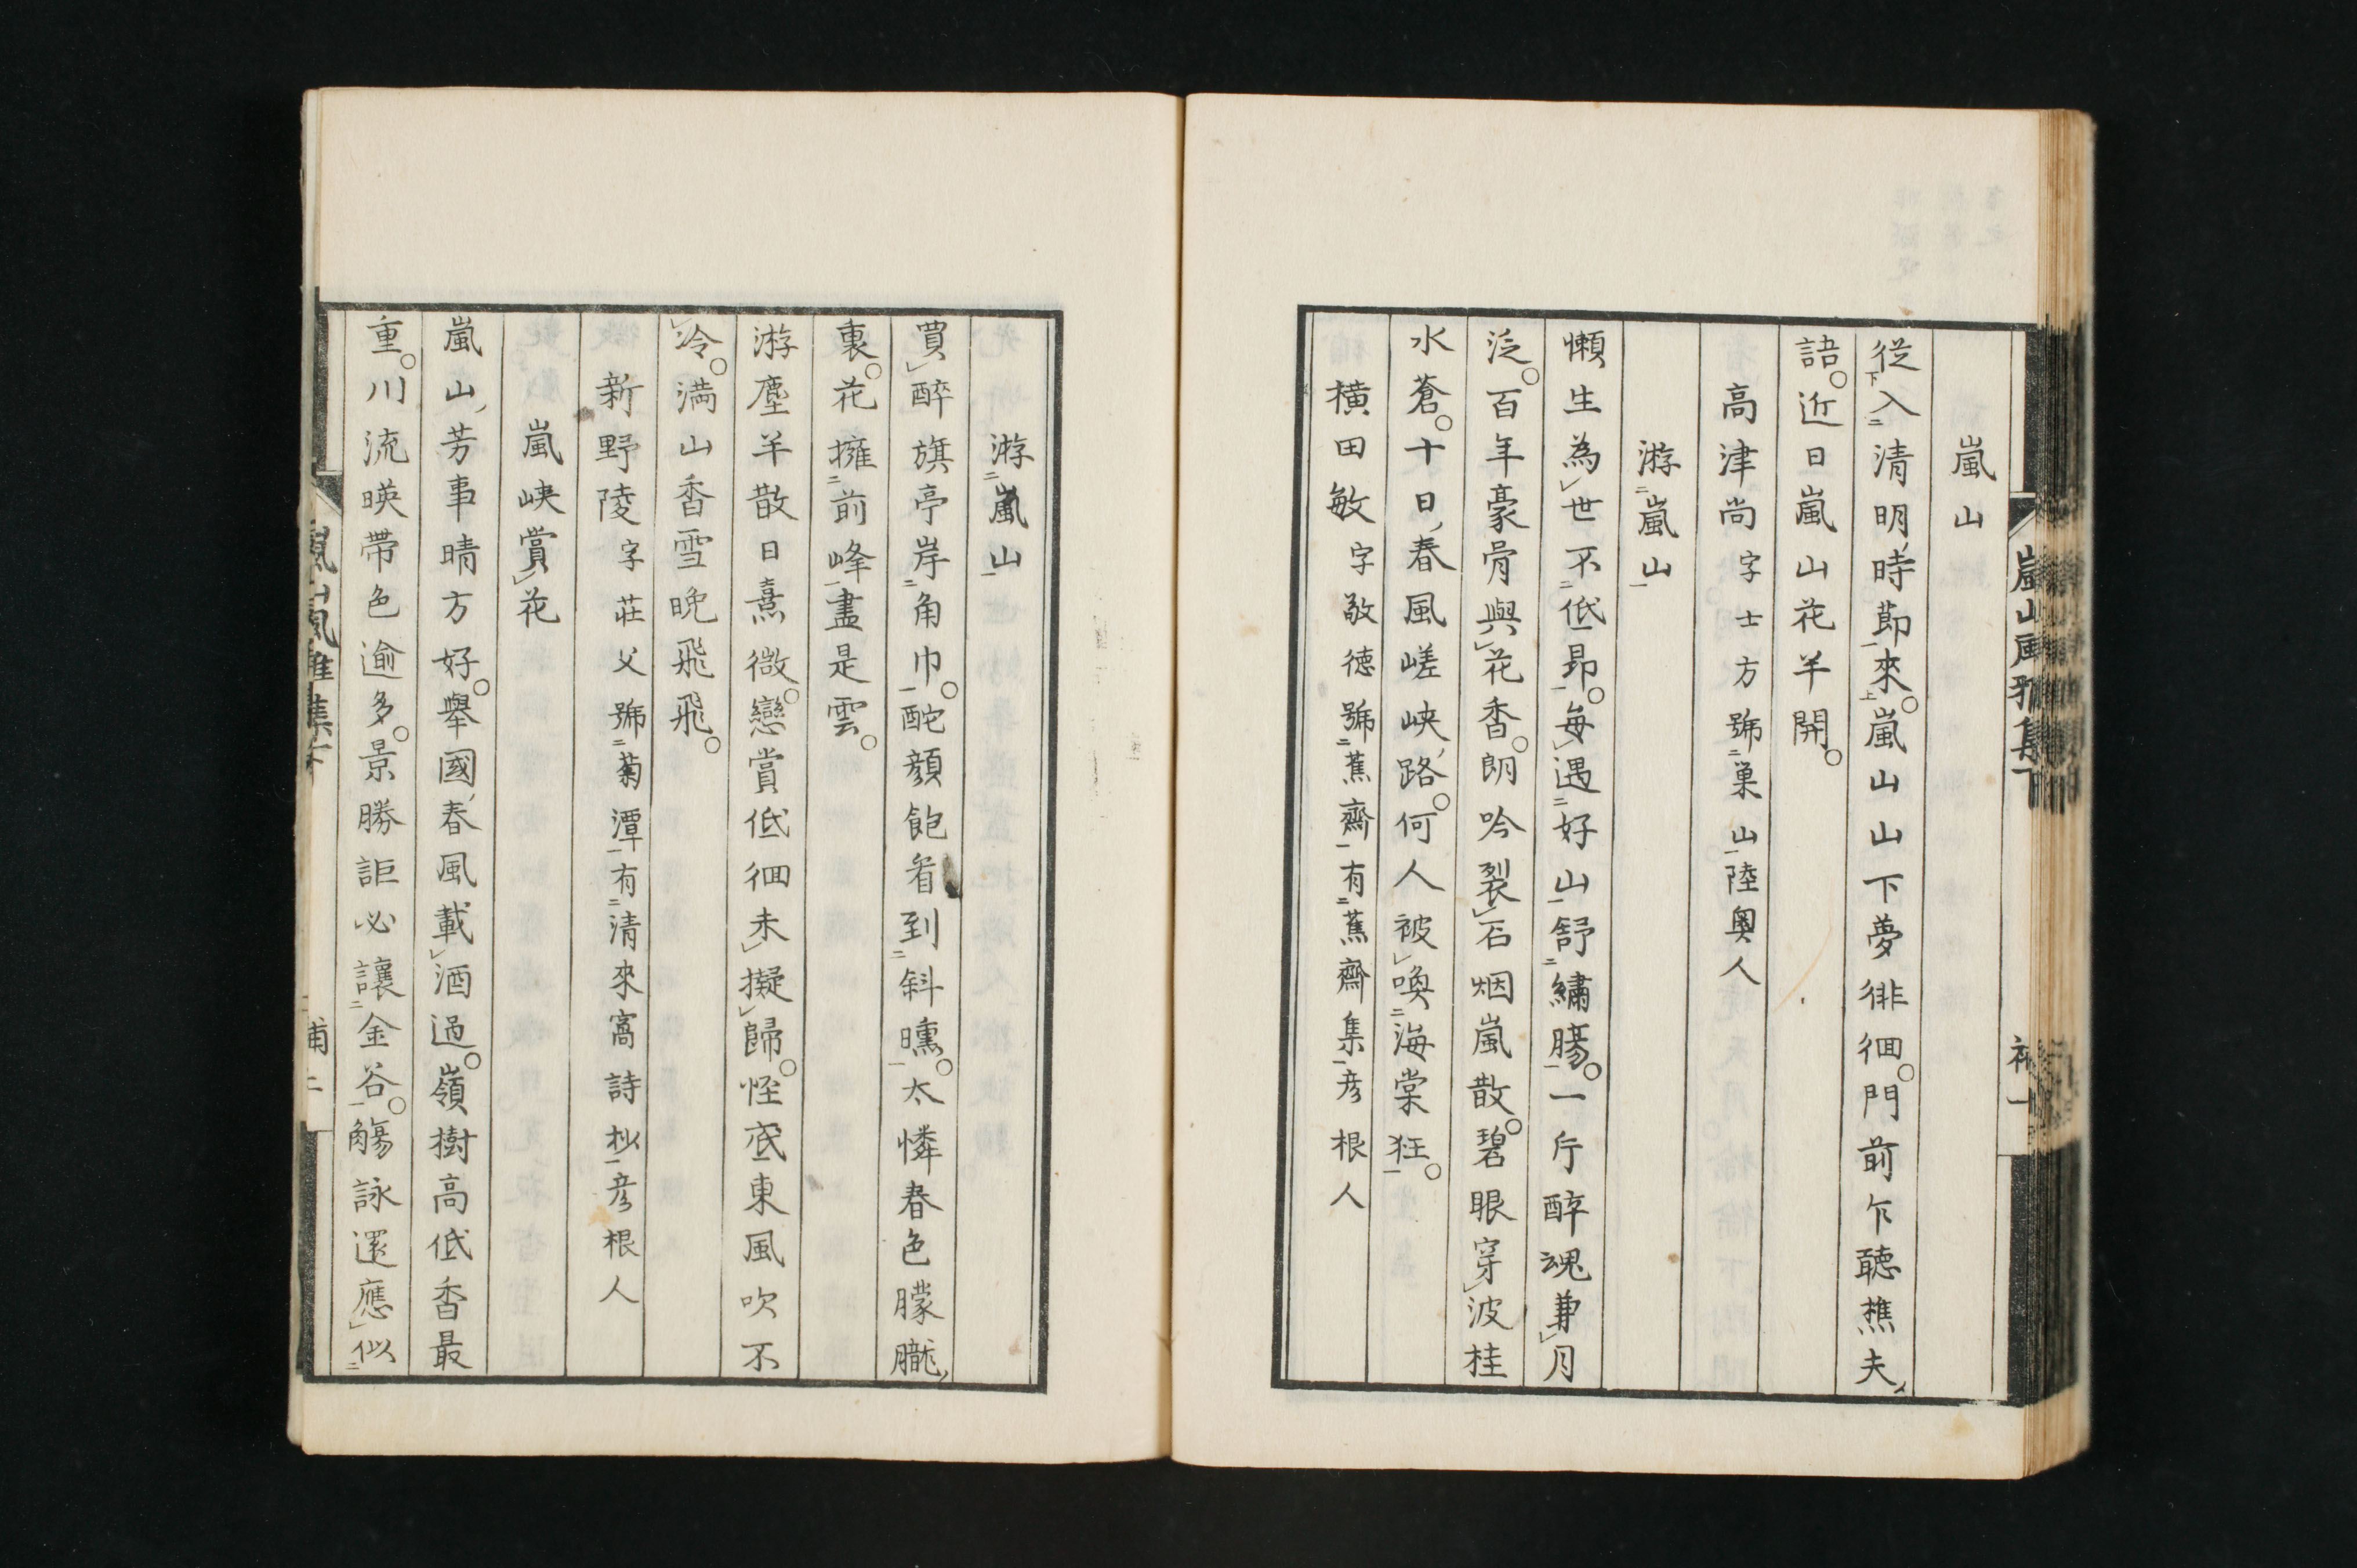 嵐山
從入清明時節來。嵐山山下夢徘徊。門前乍聽樵夫
語。近日嵐山花半開。
高津尚字士方號巢山陸奧人
游嵐山
懶生為世不低昂。每遇好山舒繡腸。一斤醉魂兼月
泛。百年豪骨與花香。朗吟裂石烟嵐散。碧眼穿波桂
水蒼。十日春風嵯峡路。何人被喚海棠狂。
橫田敏字敬德號蕉齋有蕉齋集彦根人
嵐山風雅集下
補一
游嵐山
買醉旗亭岸角巾。酡顏飽看到斜曛。太憐春色朦朧
裏。花擁前峰盡是雲。
游塵羊散日熹微。戀賞低徊未擬歸。怪底東風吹不
冷。満山香雪晚飛飛。
新野陵字莊父號菊潭有清來窩詩抄彦根人
嵐峡賞花
嵐山芳事晴方好。舉國春風載酒過。嶺樹高低香最
重。川流暎帶色逾多。景勝詎必讓金谷。觴詠還應似
嵐山風雅集下
補二